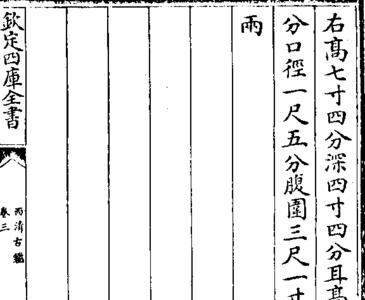 右高七寸四分深四寸四分耳高
分口徑一尺五分腹圍三尺一寸
兩
欽定四庫全書
西清古鑑
卷三